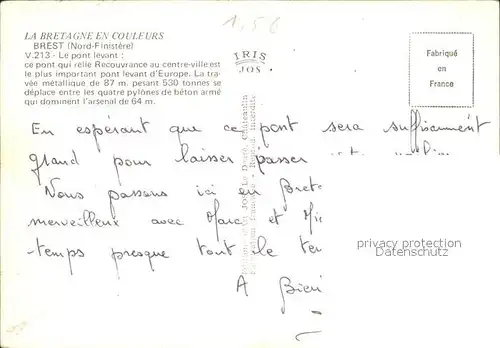 LA BRETAGNE EN COULEURS
BREST (Nord-Finistère)
V.213 - Le pont levant :
ce pont qui relie Recouvrance au centre-ville est
le plus important pont levant d'Europe. La tra-
vée métallique de 87 m. pesant 530 tonnes se
déplace entre les quatre pylônes de béton armé
qui dominent l'arsenal de 64 m.
1,56
IRIS
JOS
Fabriqué
en
France
En espérant que ce pont sera suffisamment
grand pour laisser passer
Nous passons ici en Breta
merveilleux avec Marc et Mi
temps presque tout le te
A Bien
privacy protection
Datenschutz